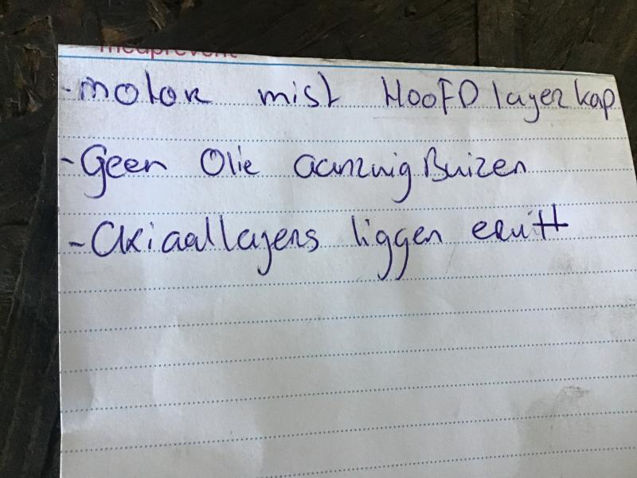 medprevent
- motor mist HooFD lager kap
- Geen Olie aanzuig Buizen
- Axiaallagers liggen eruit